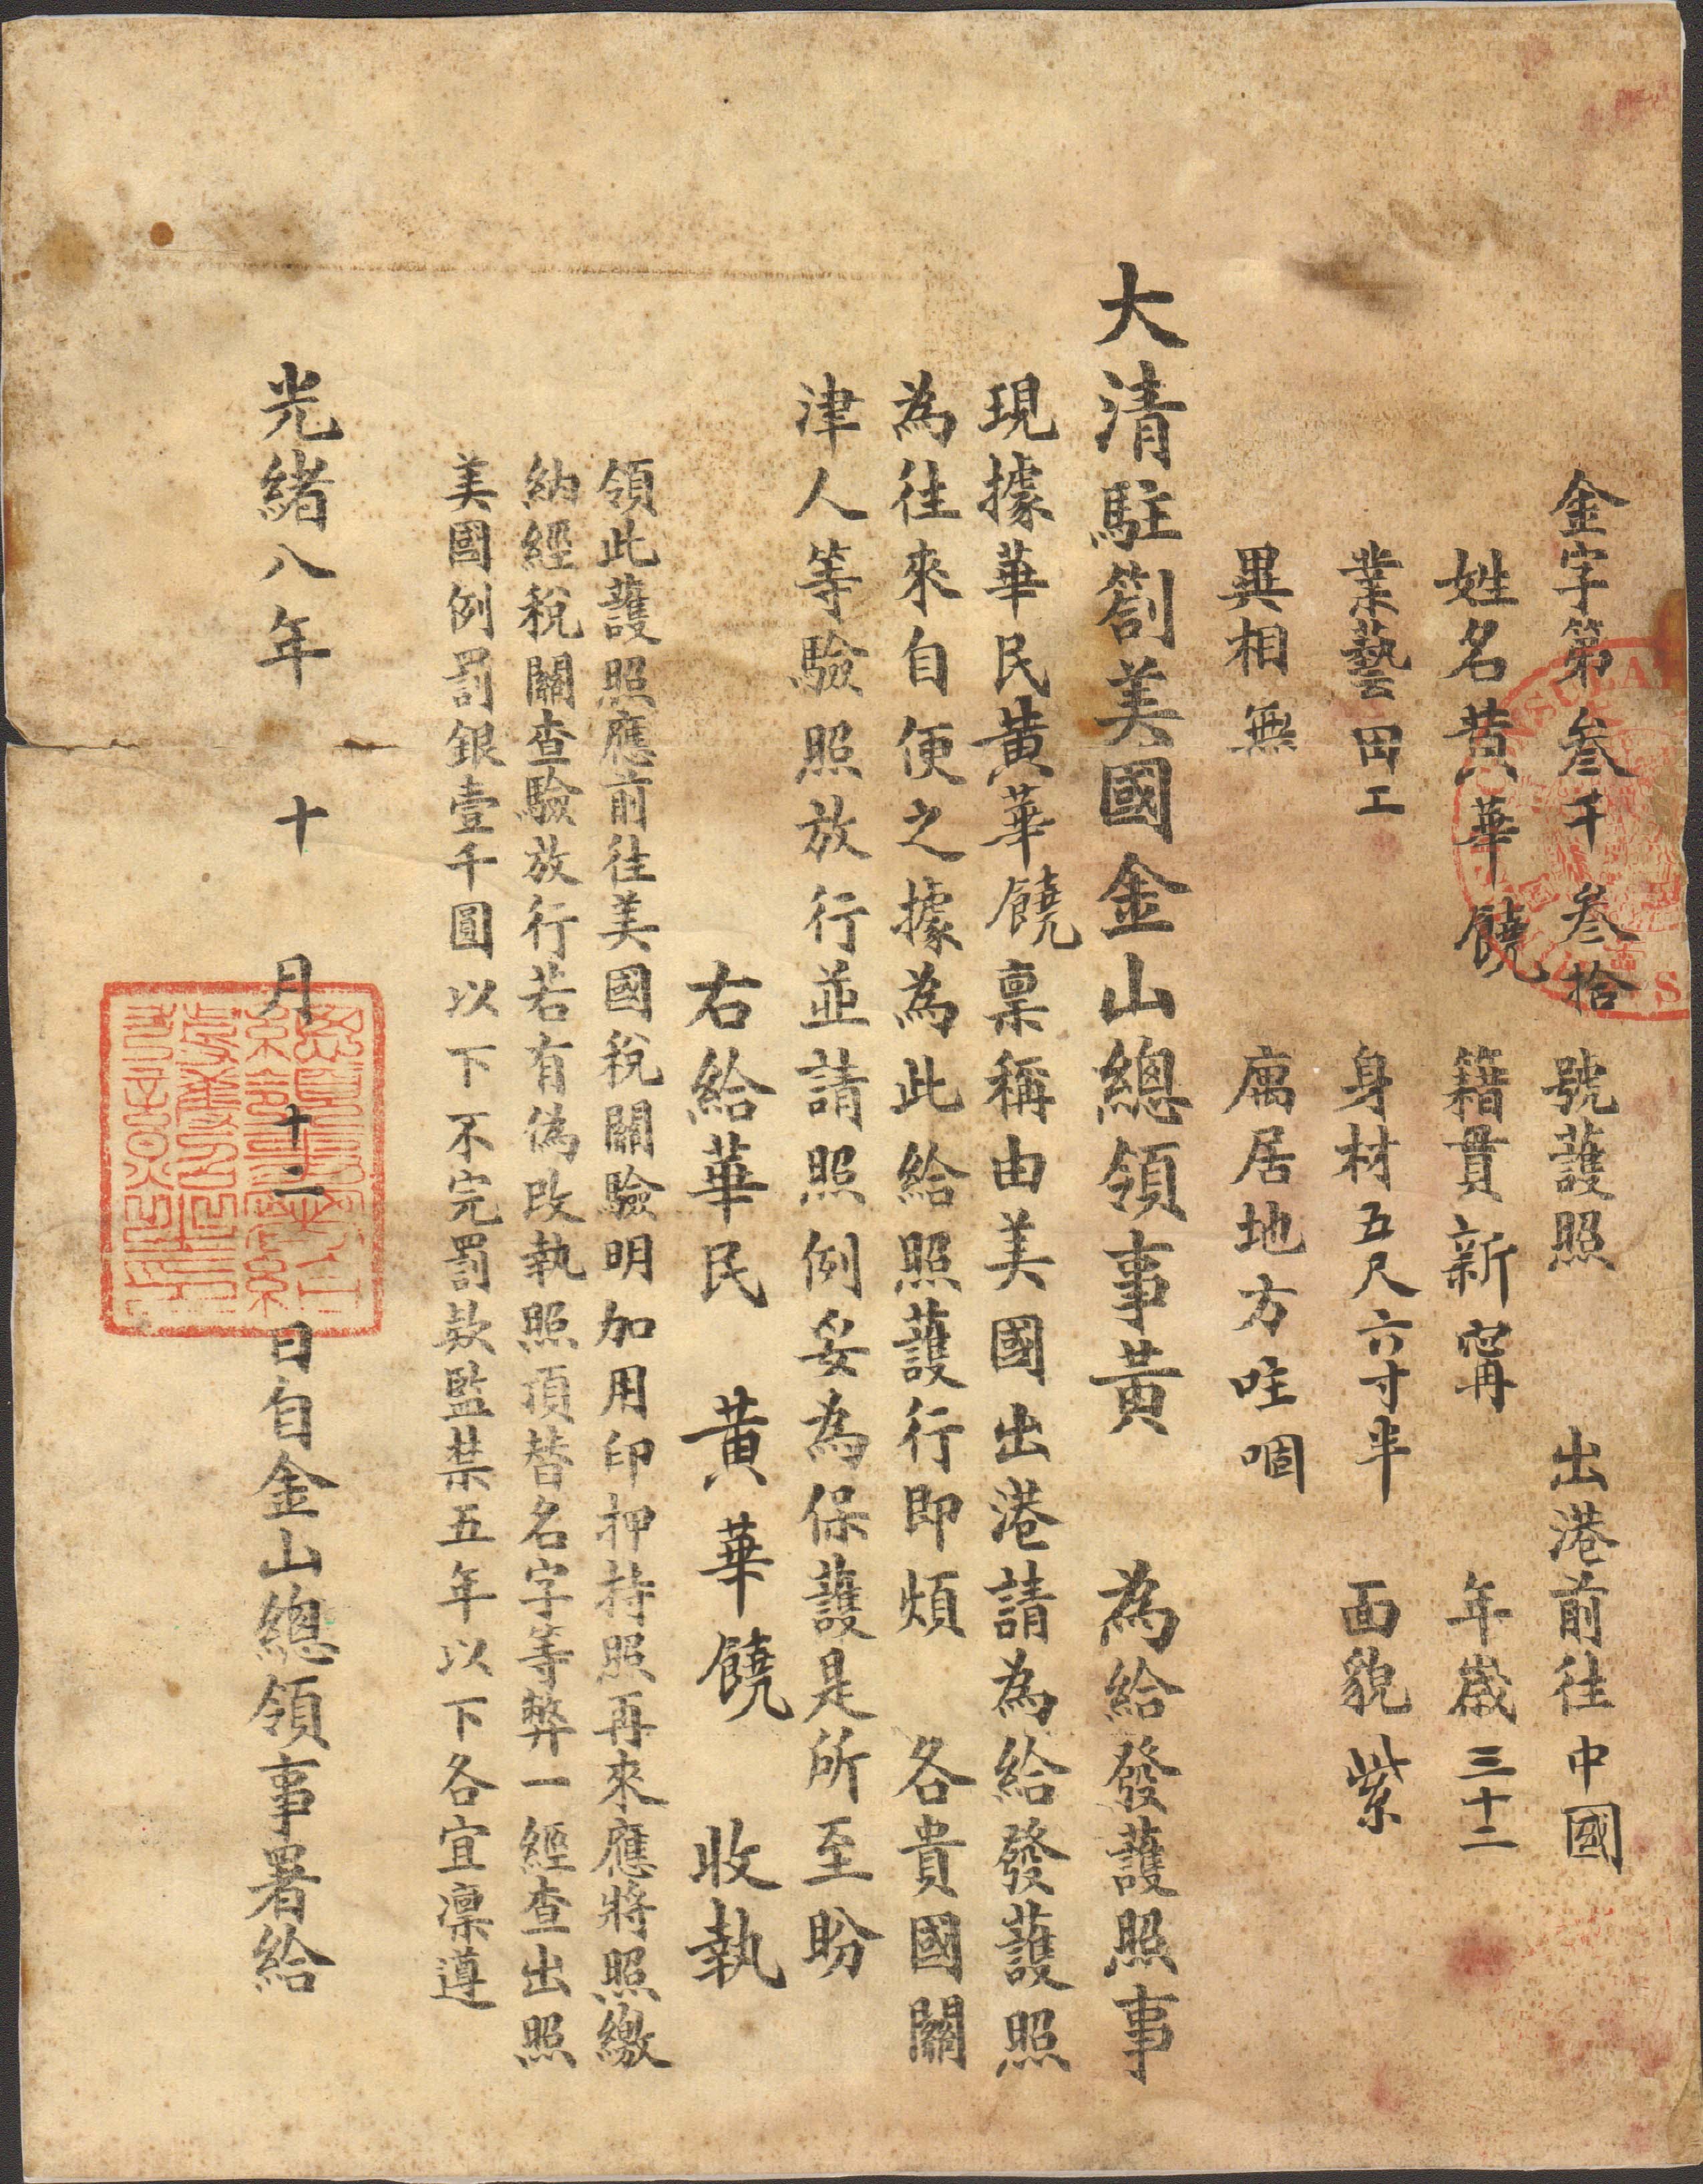 金字第叁千叁拾號護照 出港前往中國
姓名黃華饒 籍貫新甯 年歲三十二
業藝田工 身材五尺六寸半 面貌紫
異相無 寓居地方咗啯
大清駐劄美國金山總領事黃 為給發護照事
現據華民黃華饒稟稱由美國出港請為給發護照
為往來自便之據為此給照護行即煩 各貴國關
津人等驗照放行並請照例妥為保護是所至盼
右給華民 黃華饒 收執
領此護照應前往美國稅關驗明加用印押持照再來應將照繳
納經稅關查驗放行若有偽改執照頂替名字等弊一經查出照
美國例罰銀壹千圓以下不完罰款監禁五年以下各宜凜遵
光緒八年 十 月 十二 日自金山總領事署給